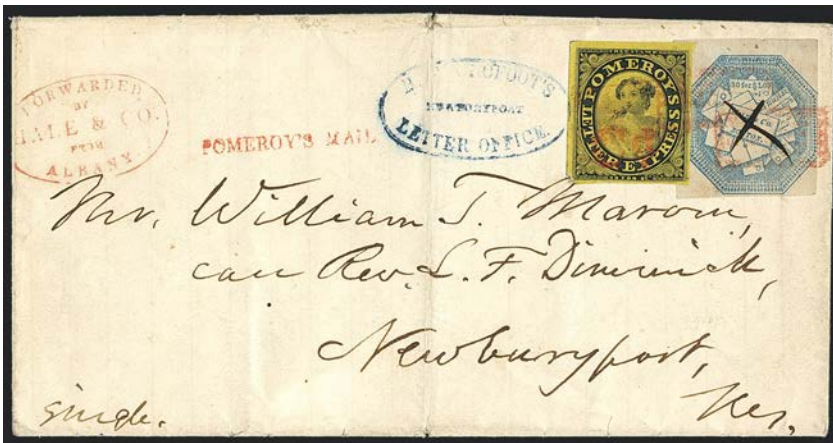 FORWARDED
BY
HALE & CO.
FROM
ALBANY
POMEROY'S MAIL
NEWBURYPORT
LETTER OFFICE.
POMEROY'S
LETTER EXPRESS
20 for $1.00
Mr. William T.
care Rev. L. F. Dimmick,
Newburyport,
single.